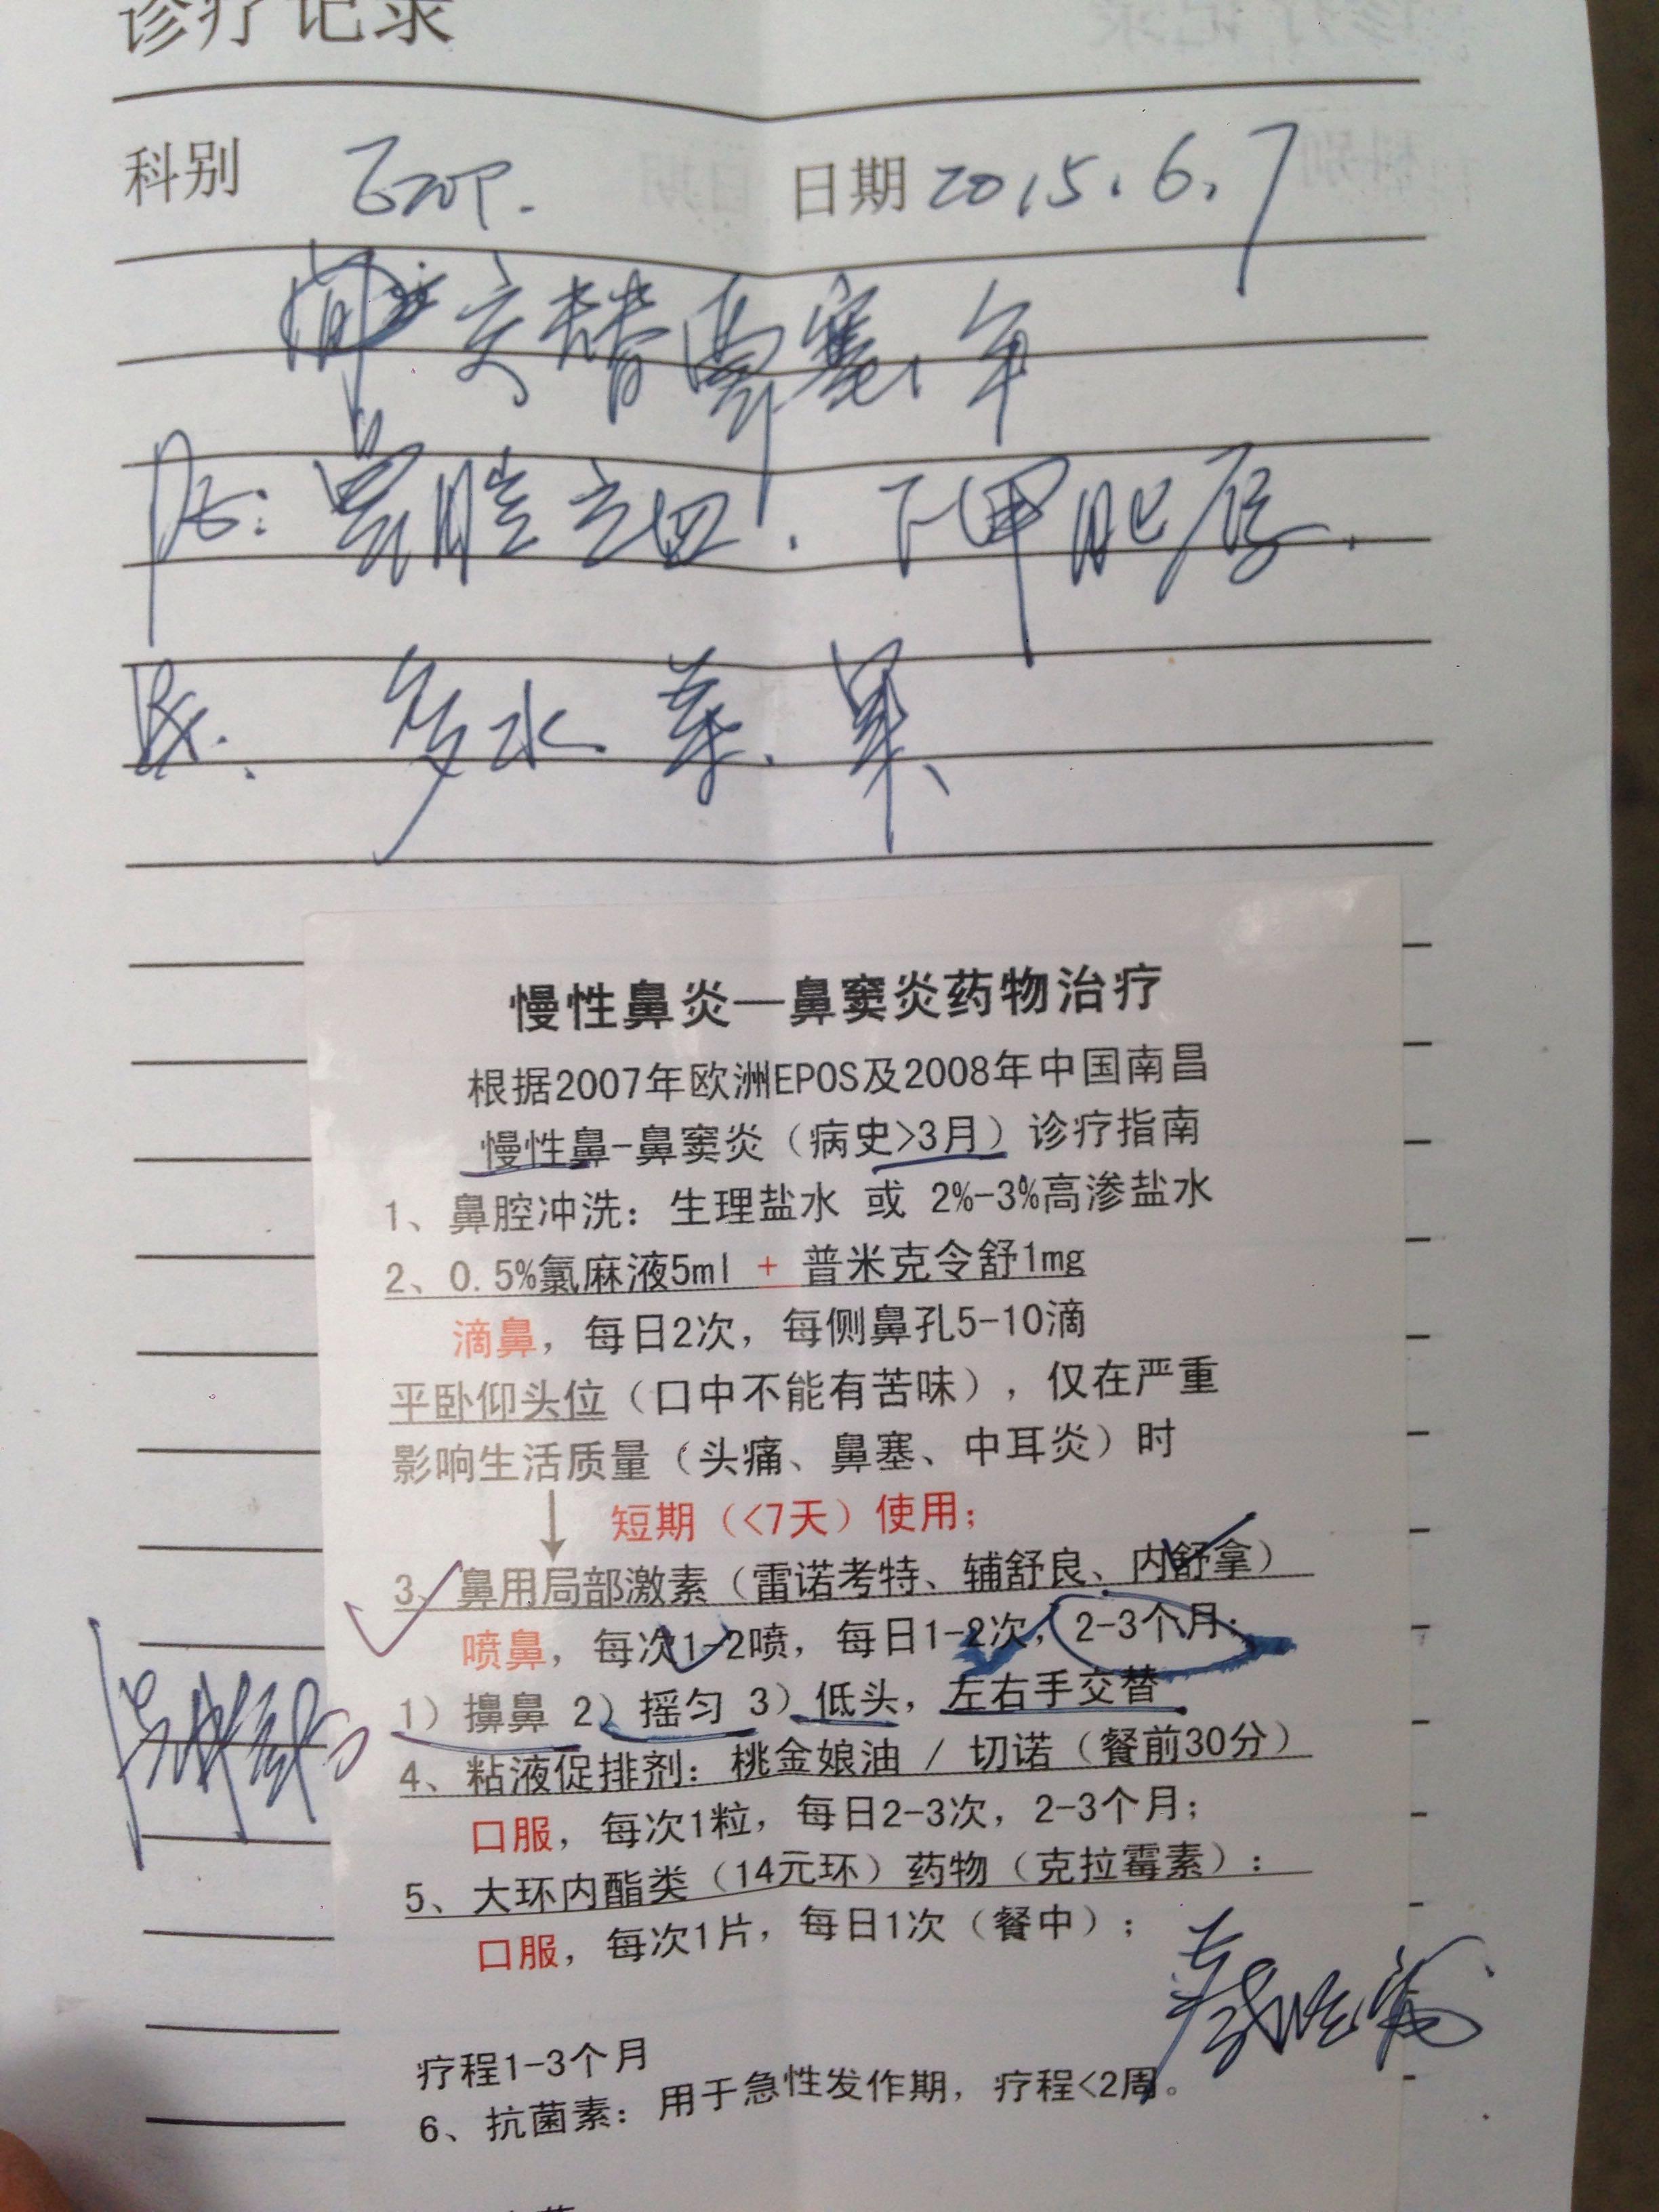 诊疗记录
科别 Ent. 日期 2015.6.7
交替鼻塞1年
PE: 鼻腔 下甲肥厚.
Rx. 多水.菜.果、
慢性鼻炎—鼻窦炎药物治疗
根据2007年欧洲EPOS及2008年中国南昌
慢性鼻-鼻窦炎（病史>3月）诊疗指南
1、鼻腔冲洗：生理盐水 或 2%-3%高渗盐水
2、0.5%氯麻液5ml + 普米克令舒1mg
滴鼻，每日2次，每侧鼻孔5-10滴
平卧仰头位（口中不能有苦味），仅在严重
影响生活质量（头痛、鼻塞、中耳炎）时
短期（<7天）使用；
3、鼻用局部激素（雷诺考特、辅舒良、内舒拿）
喷鼻，每次1-2喷，每日1-2次，2-3个月；
1）擤鼻 2）摇匀 3）低头，左右手交替
4、粘液促排剂：桃金娘油 / 切诺（餐前30分）
口服，每次1粒，每日2-3次，2-3个月；
5、大环内酯类（14元环）药物（克拉霉素）：
口服，每次1片，每日1次（餐中）；
疗程1-3个月
6、抗菌素：用于急性发作期，疗程<2周。